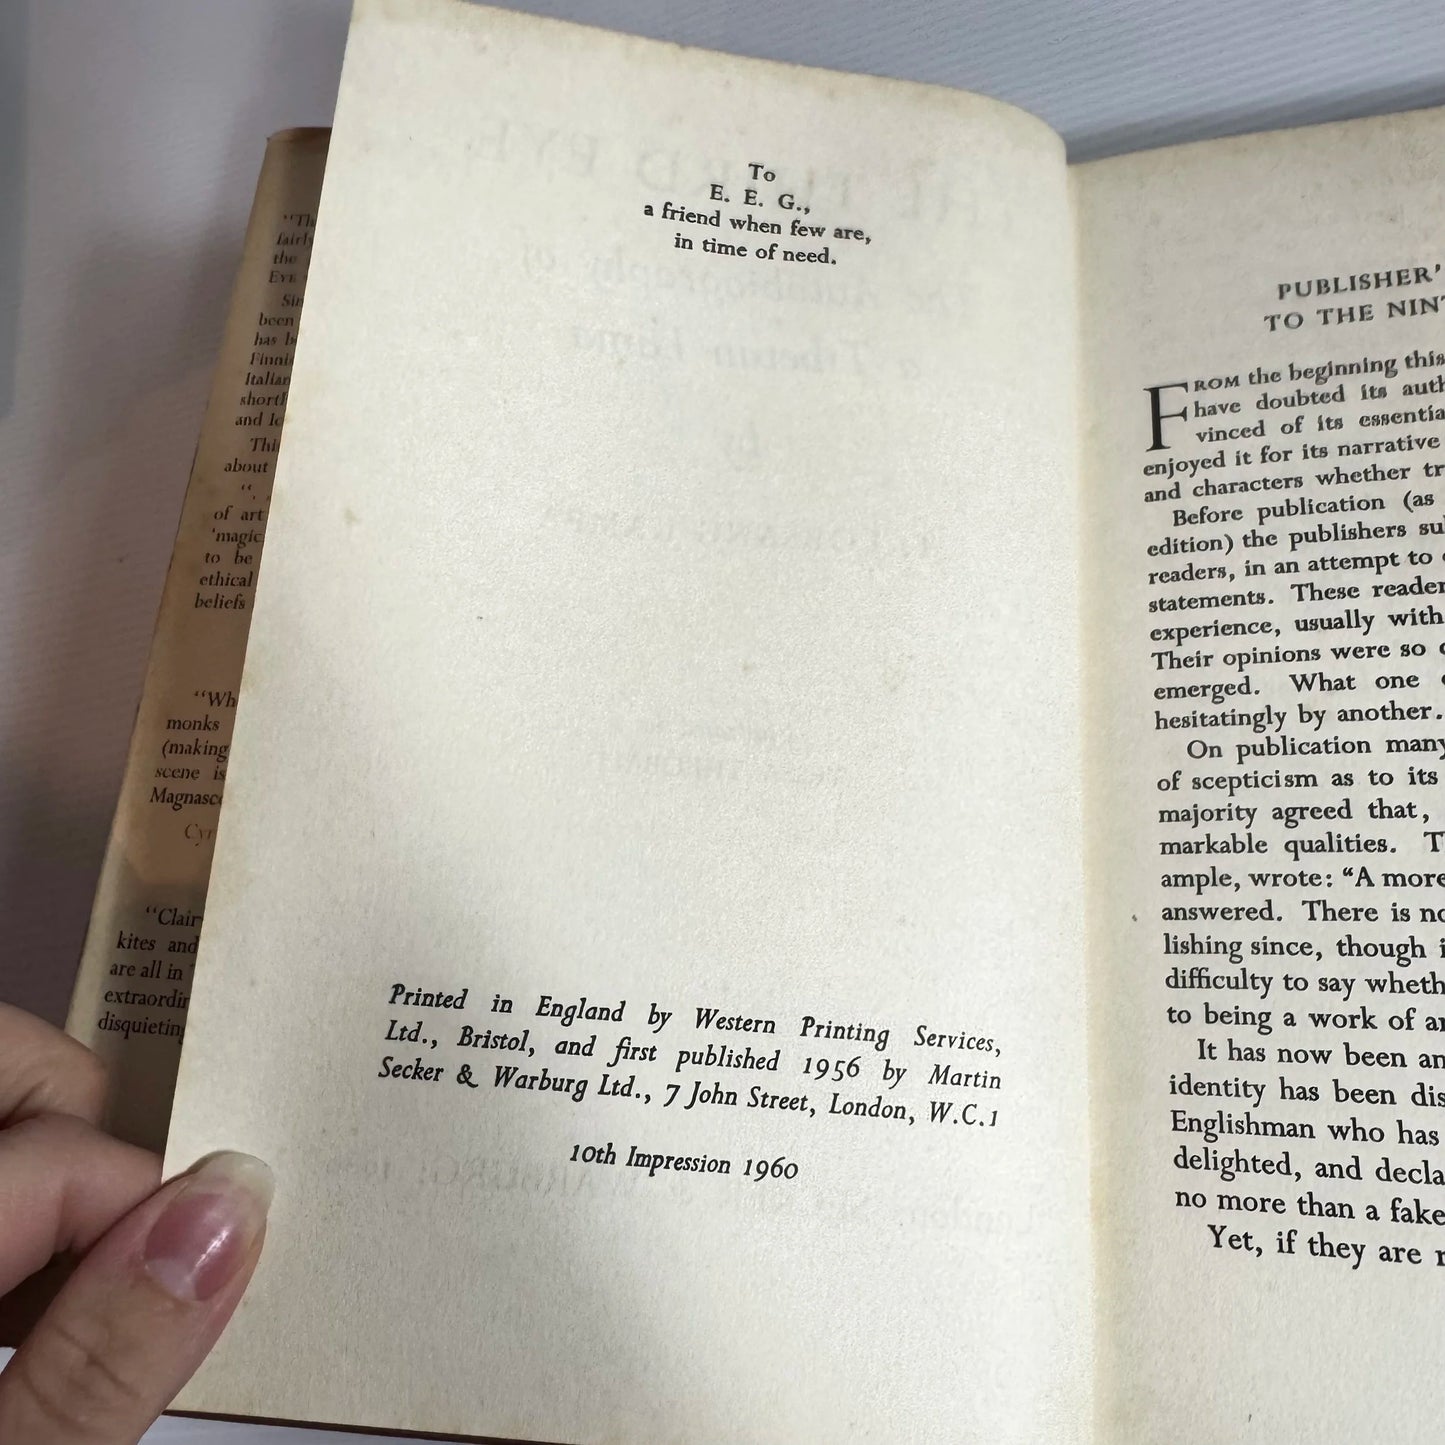 To
E. E. G.,
a friend when few are,
in time of need.
Printed in England by Western Printing Services,
Ltd., Bristol, and first published 1956 by Martin
Secker & Warburg Ltd., 7 John Street, London, W.C.1
10th Impression 1960
PUBLISHER'
TO THE
FROM the beginning this
have doubted its
vinced of its
enjoyed it for its narrative
and characters whether
Before publication (as
edition) the publishers
readers, in an attempt to
statements. These
experience, usually with
Their opinions were so
emerged. What one
hesitatingly by another.
On publication many
of scepticism as to its
majority agreed that,
markable qualities.
ample, wrote: "A more
answered. There is
lishing since, though
difficulty to say
to being a work of
It has now been
identity has been
Englishman who has
delighted, and
no more than a fake
Yet, if they are
fairly
the
EYE
been
has
Italian
and
about
of art
'magic
to be
ethical
beliefs
monks
(making
scene is
"Clair
kites and
are all in
disquieting